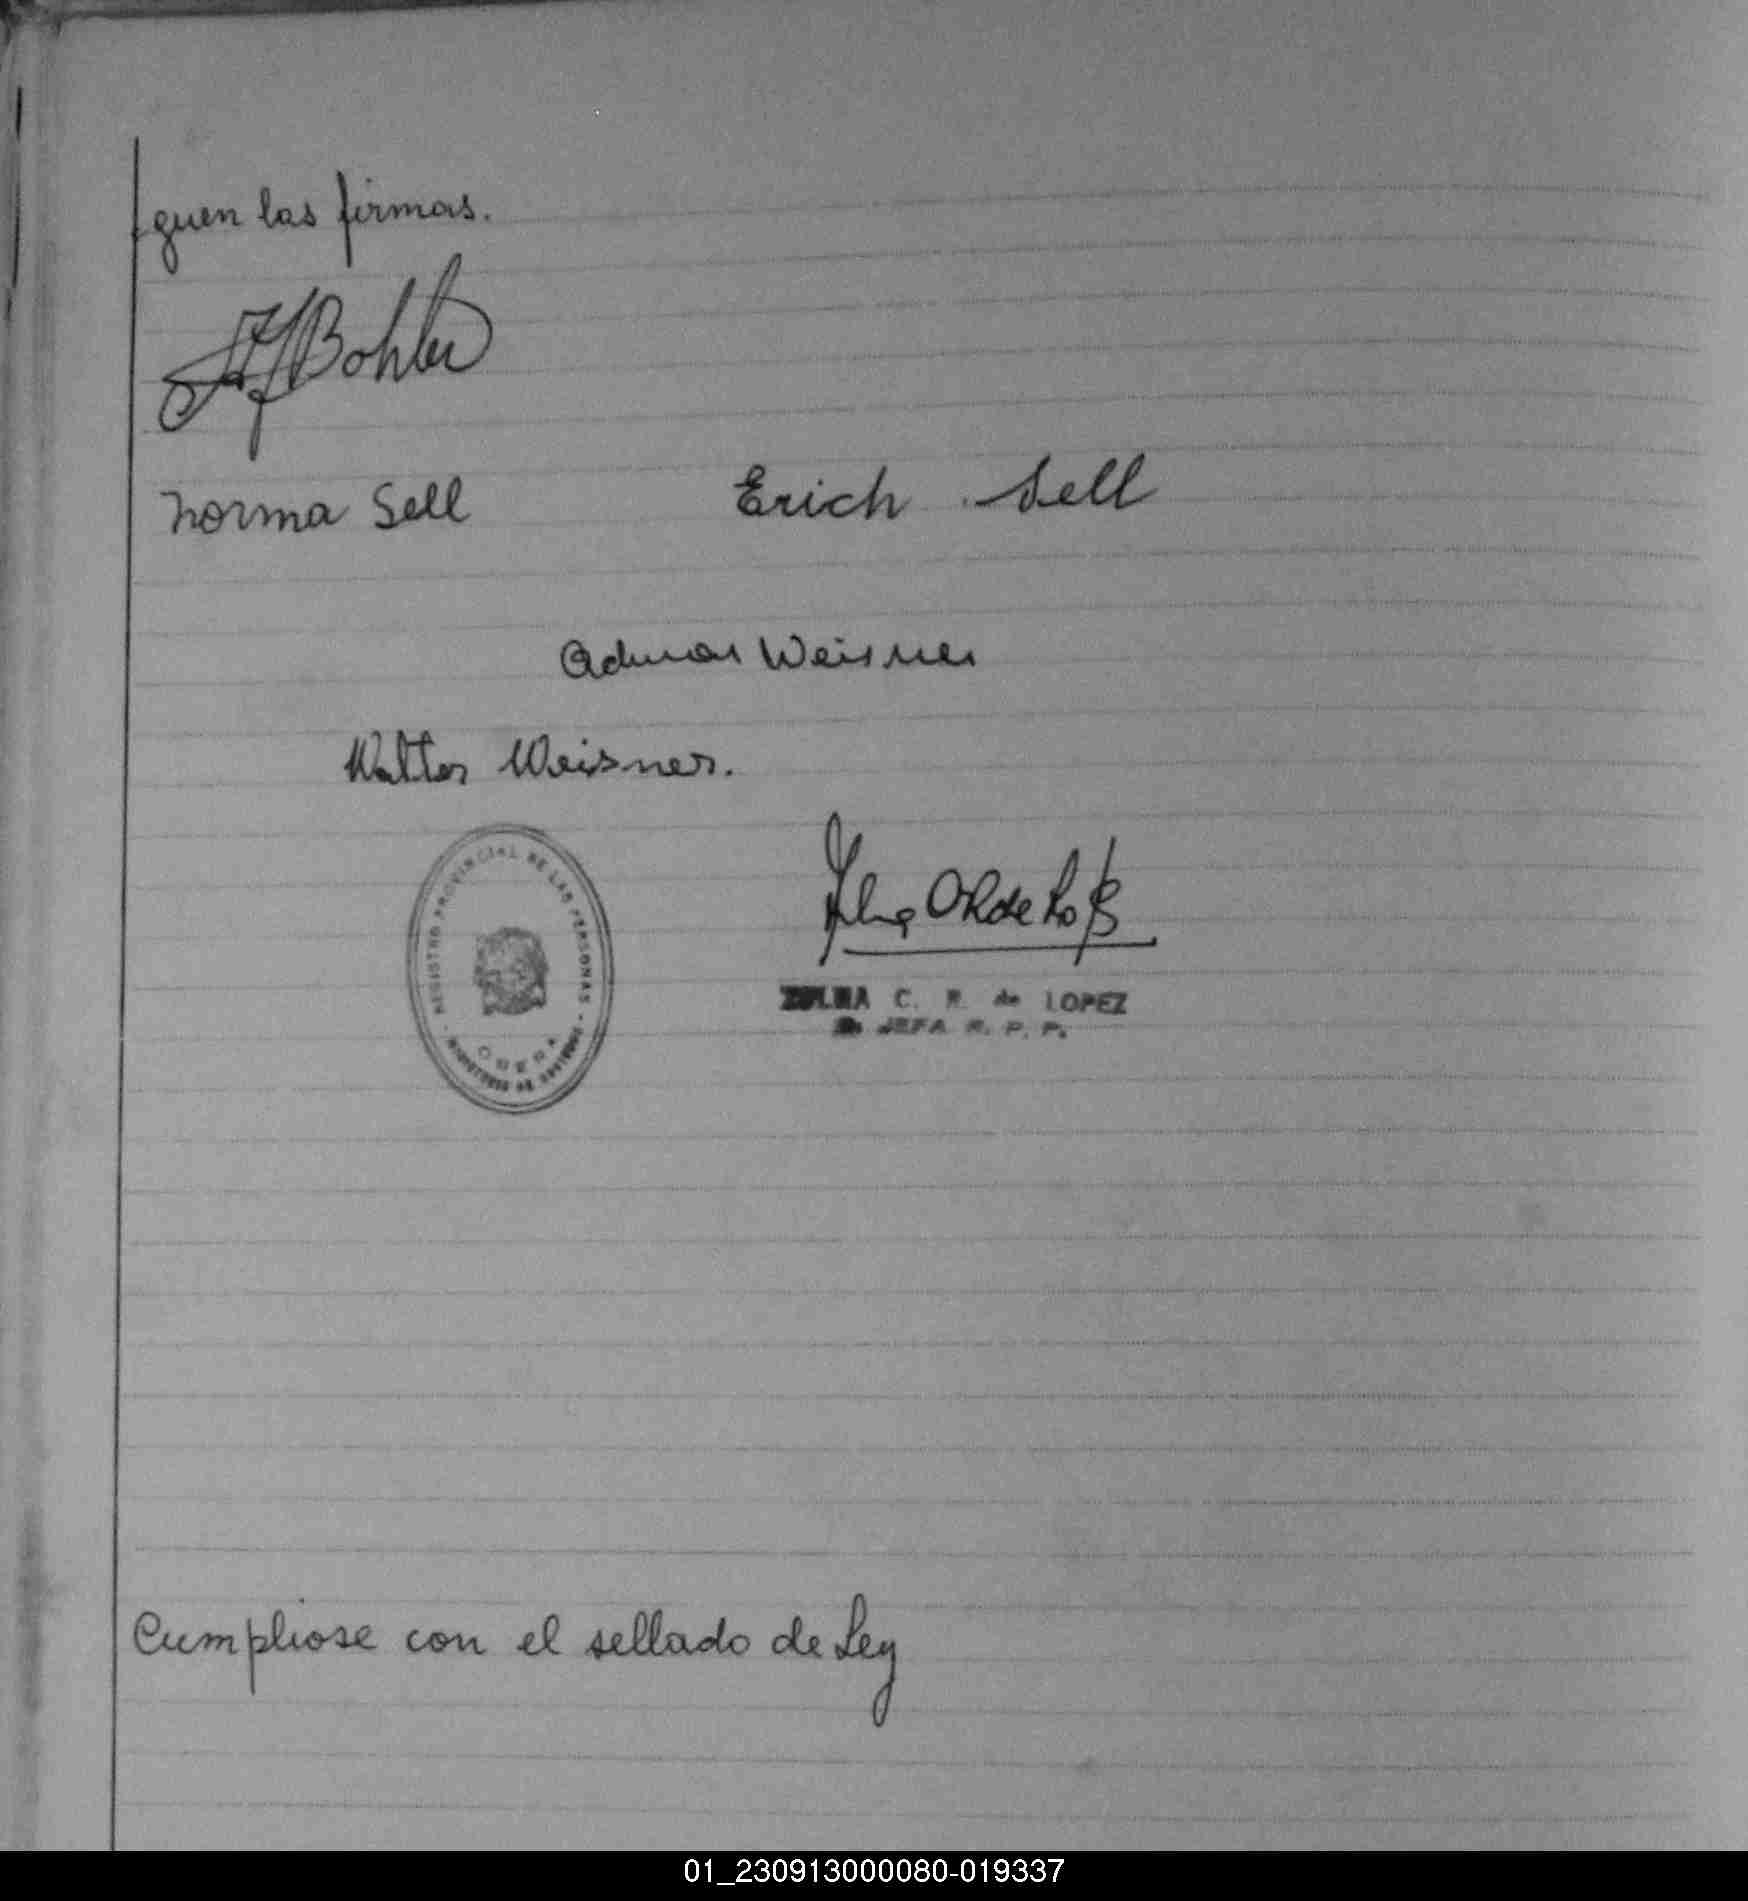 guen las firmas.
Bohler
Norma Sell Erich Sell
Weisner
Walter Weisner.
REGISTRO PROVINCIAL DE LAS PERSONAS
OBERA
ZULMA C. R. de LOPEZ
JEFA R. P. P.
Cumpliose con el sellado de Ley
01_230913000080-019337